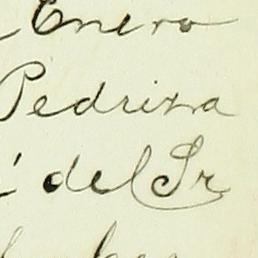 Enero
Pedriza
del Sr